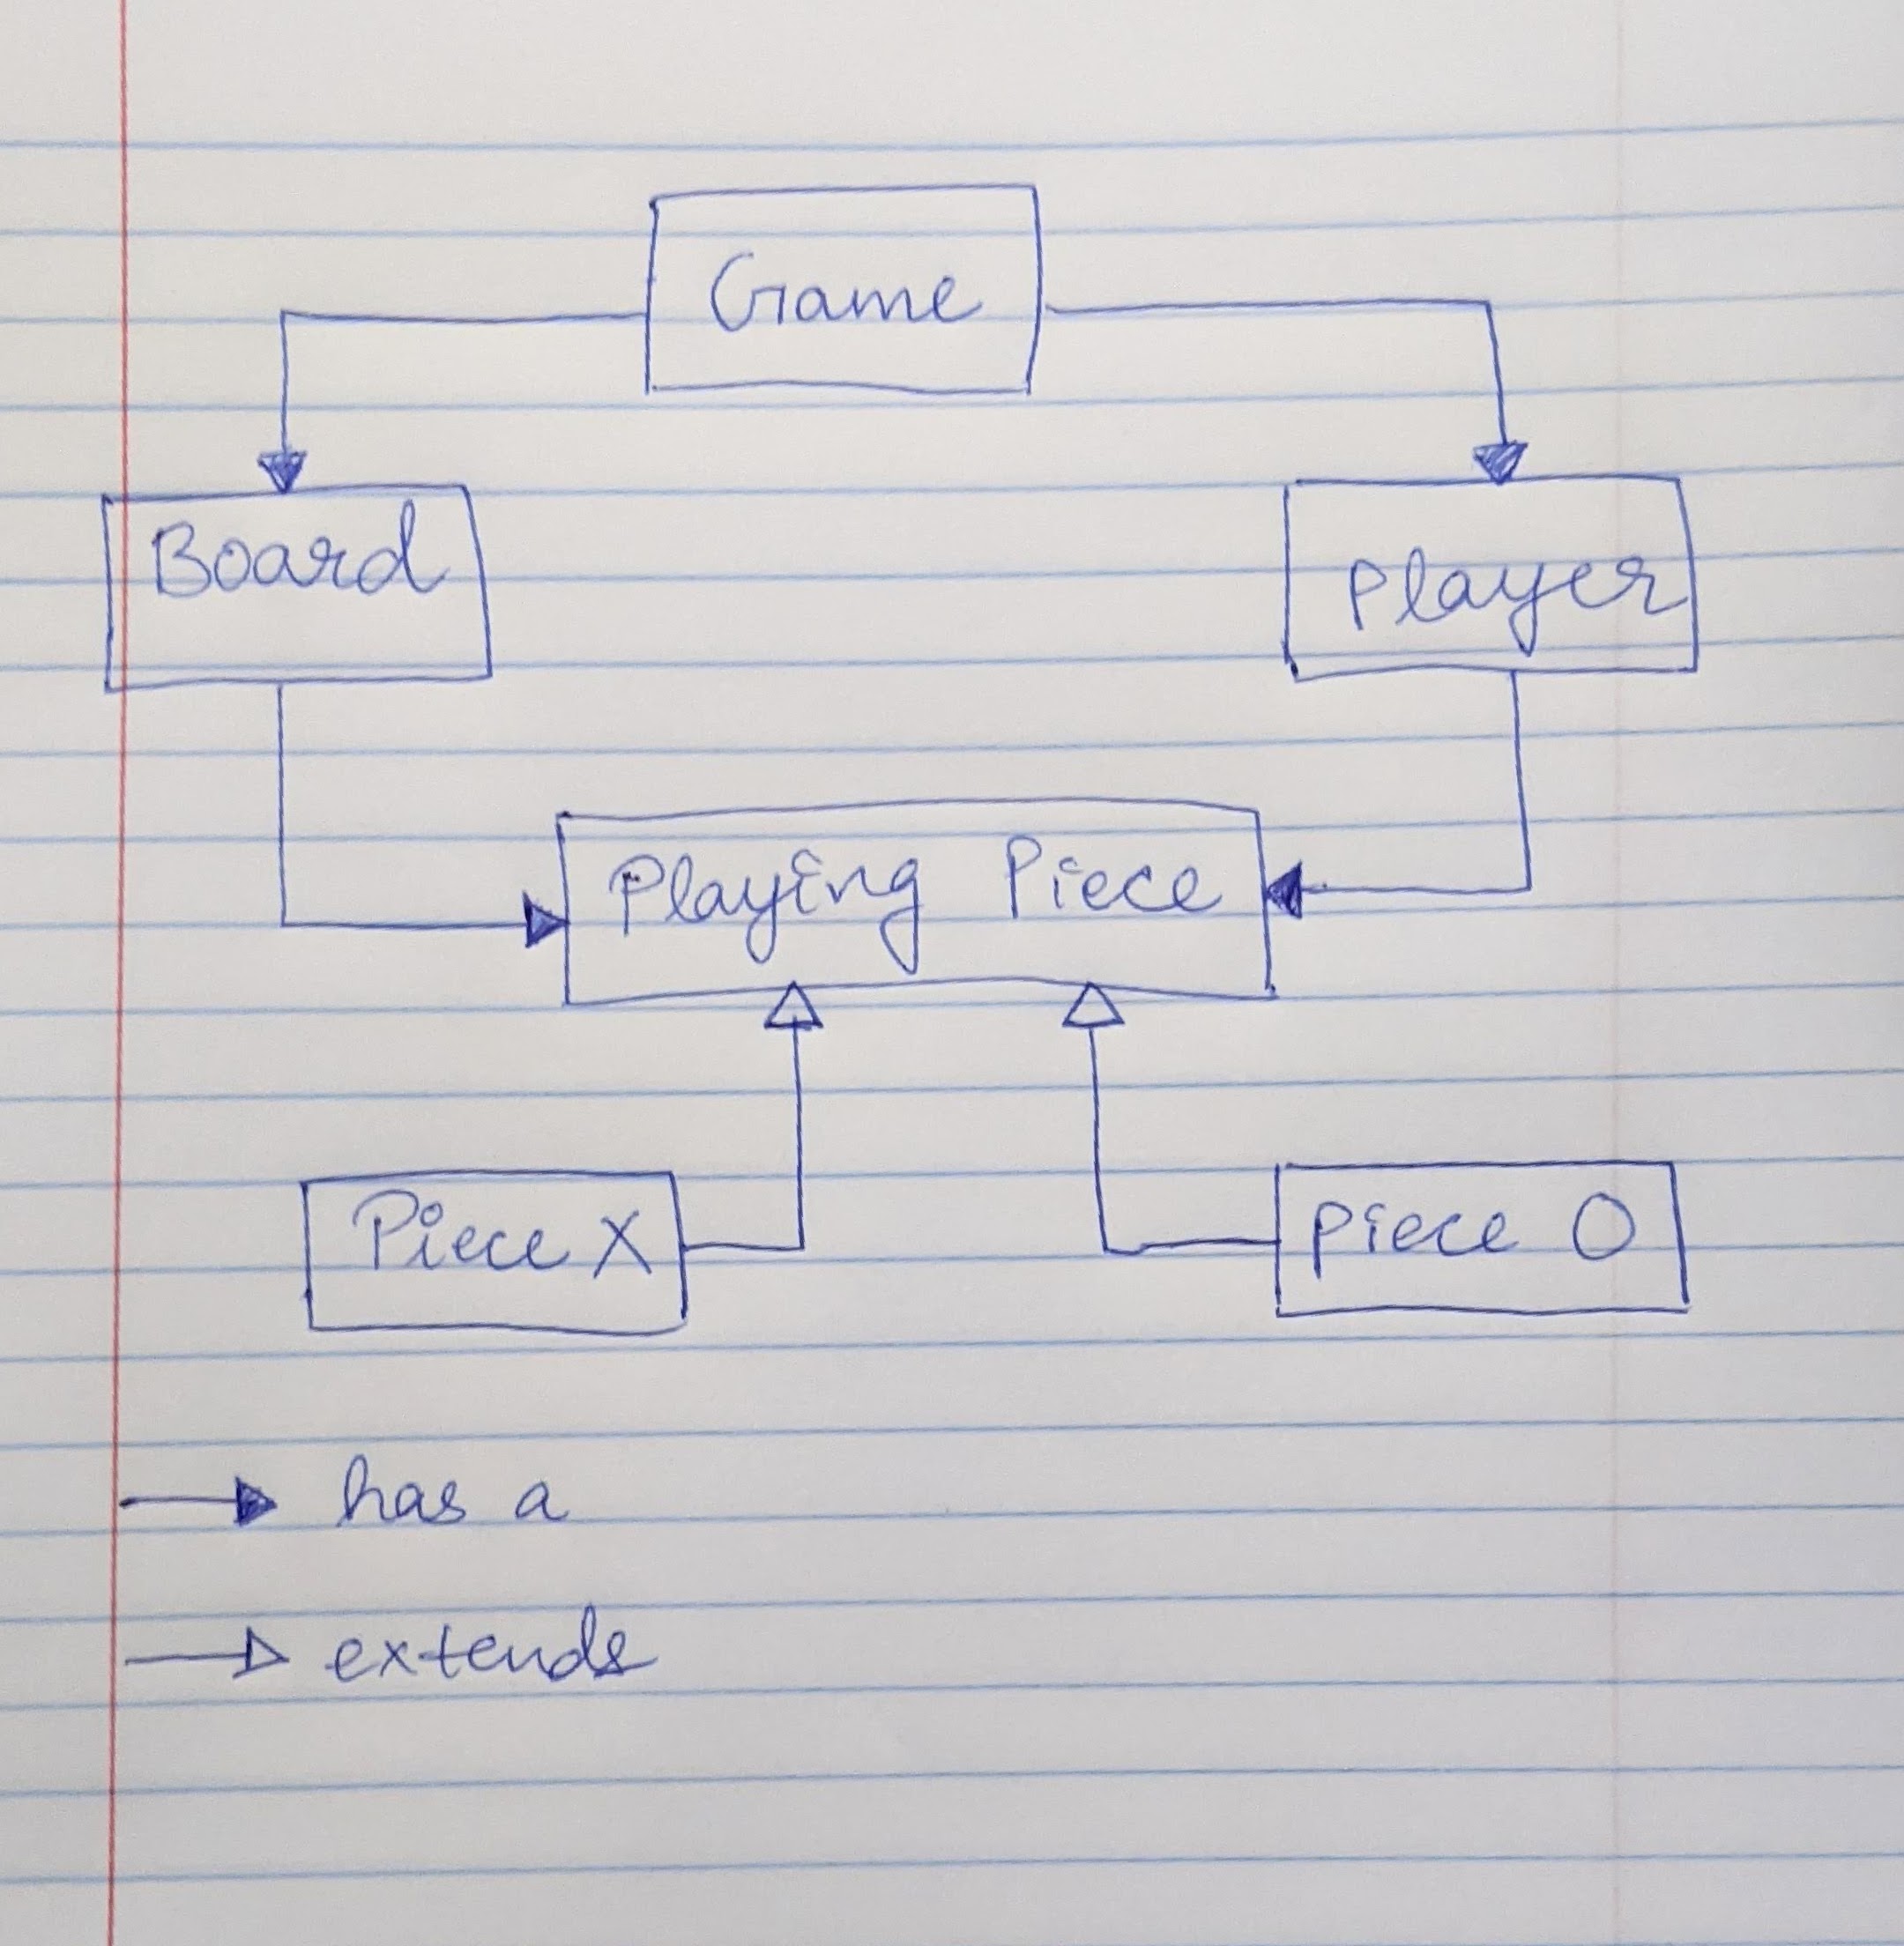 Game
Board
Player
Playing Piece
Piece X
Piece O
has a
extends